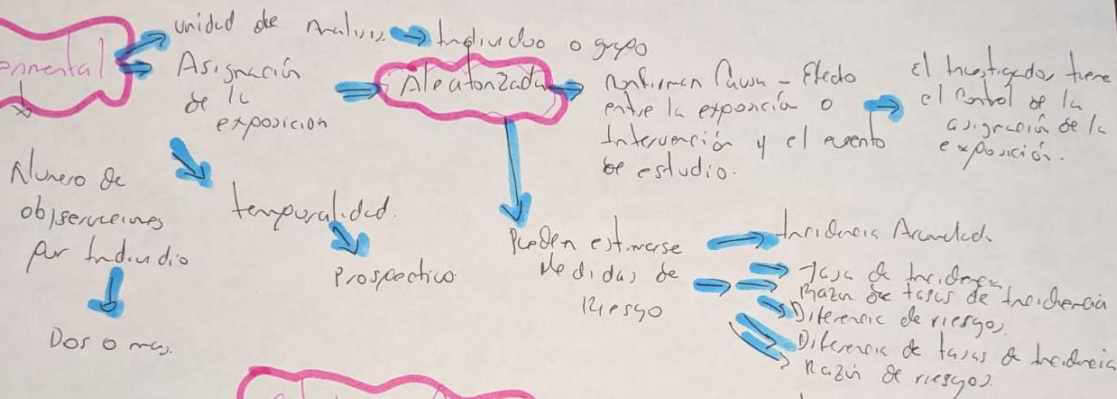 unidad de Analisis
Individuo o grupo
enmental
Asignación
de la
exposicion
Aleatorizada
Confirman Causa - Efecto
entre la exposición o
Intervención y el evento
de estudio.
El Investigador tiene
el Control de la
asignación de la
exposición.
Número de
observaciones
por Individuo
Dos o mas.
temporalidad.
Prospectivo
Pueden estimarse
Medidas de
Riesgo
Incidencia Acumulada
Tasa de Incidencia
Razón de tasas de Incidencia
Diferencia de riesgos.
Diferencia de tasas de Incidencia
Razón de riesgos.